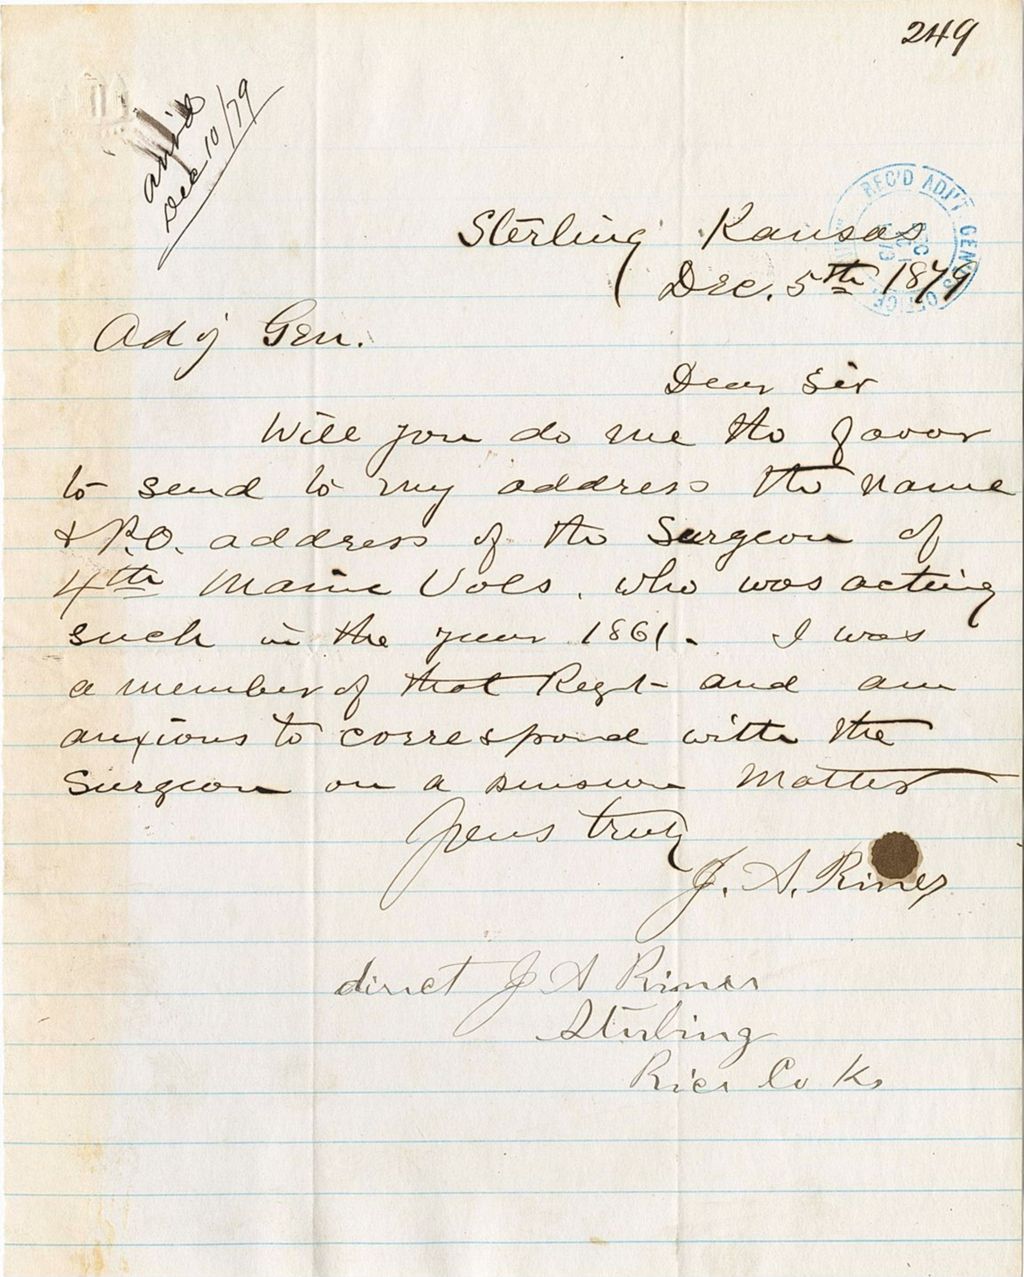 249
ans'd
Dec 10/79
REC'D ADJ'T GEN'S OFFICE
DEC
Sterling Kansas
Dec. 5th 1879
Adj Gen.
Dear Sir
Will you do me the favor
to send to my address the name
& P.O. address of the Surgeon of
4th Maine Vols. who was acting
such in the year 1861. I was
a member of that Regt and am
anxious to correspond with the
Surgeon on a pension matter
Yours truly
J. A. Riner
direct J A Riner
Sterling
Rice Co Ks